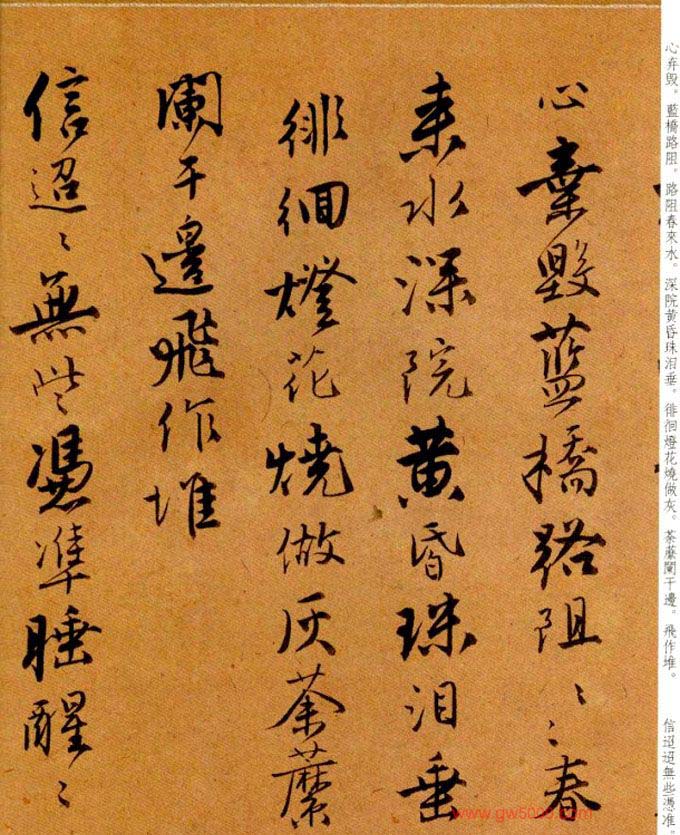 心弃毁。藍橋路阻。路阻春來水。深院黄昏珠泪垂。徘徊燈花燒做灰。荼蘼闌干邊。飛作堆。 信迢迢無些憑准。
心棄毁藍橋路阻〻〻春
来水深院黄昏珠泪垂
徘徊燈花燒做灰荼蘼
闌干邊飛作堆
信迢〻無些憑準睡醒〻